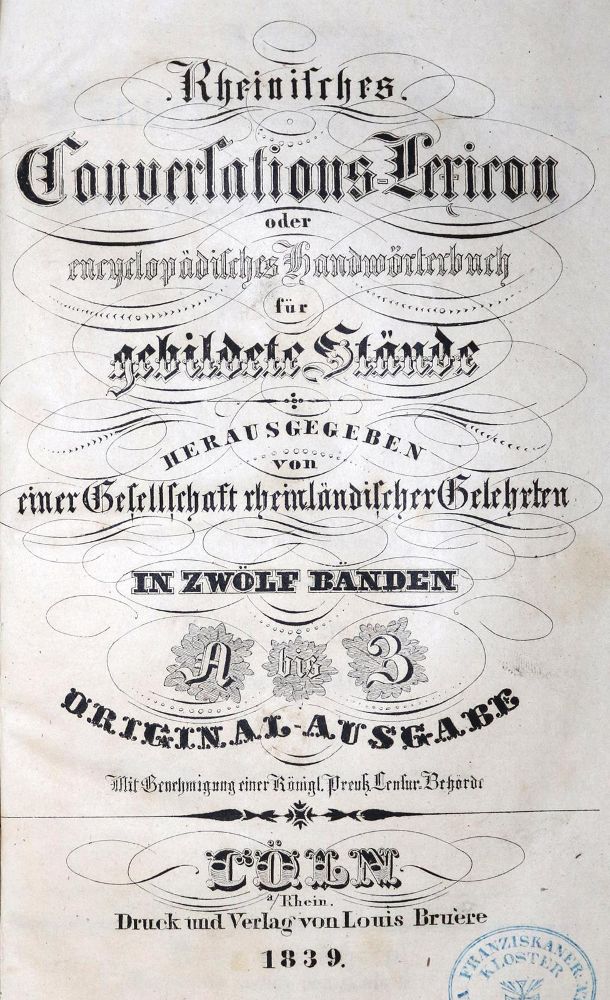 Rheinisches.
Conversations-Lexicon
oder
encyclopädisches Handwörterbuch
für
gebildete Stände
HERAUSGEGEBEN
von
einer Gesellschaft rheinländischer Gelehrten
IN ZWÖLF BÄNDEN
A bis Z
ORIGINAL-AUSGABE
Mit Genehmigung einer Königl. Preuß. Censur-Behörde
CÖLN
a/Rhein.
Druck und Verlag von Louis Bruère
1839.
FRANZISKANER
KLOSTER